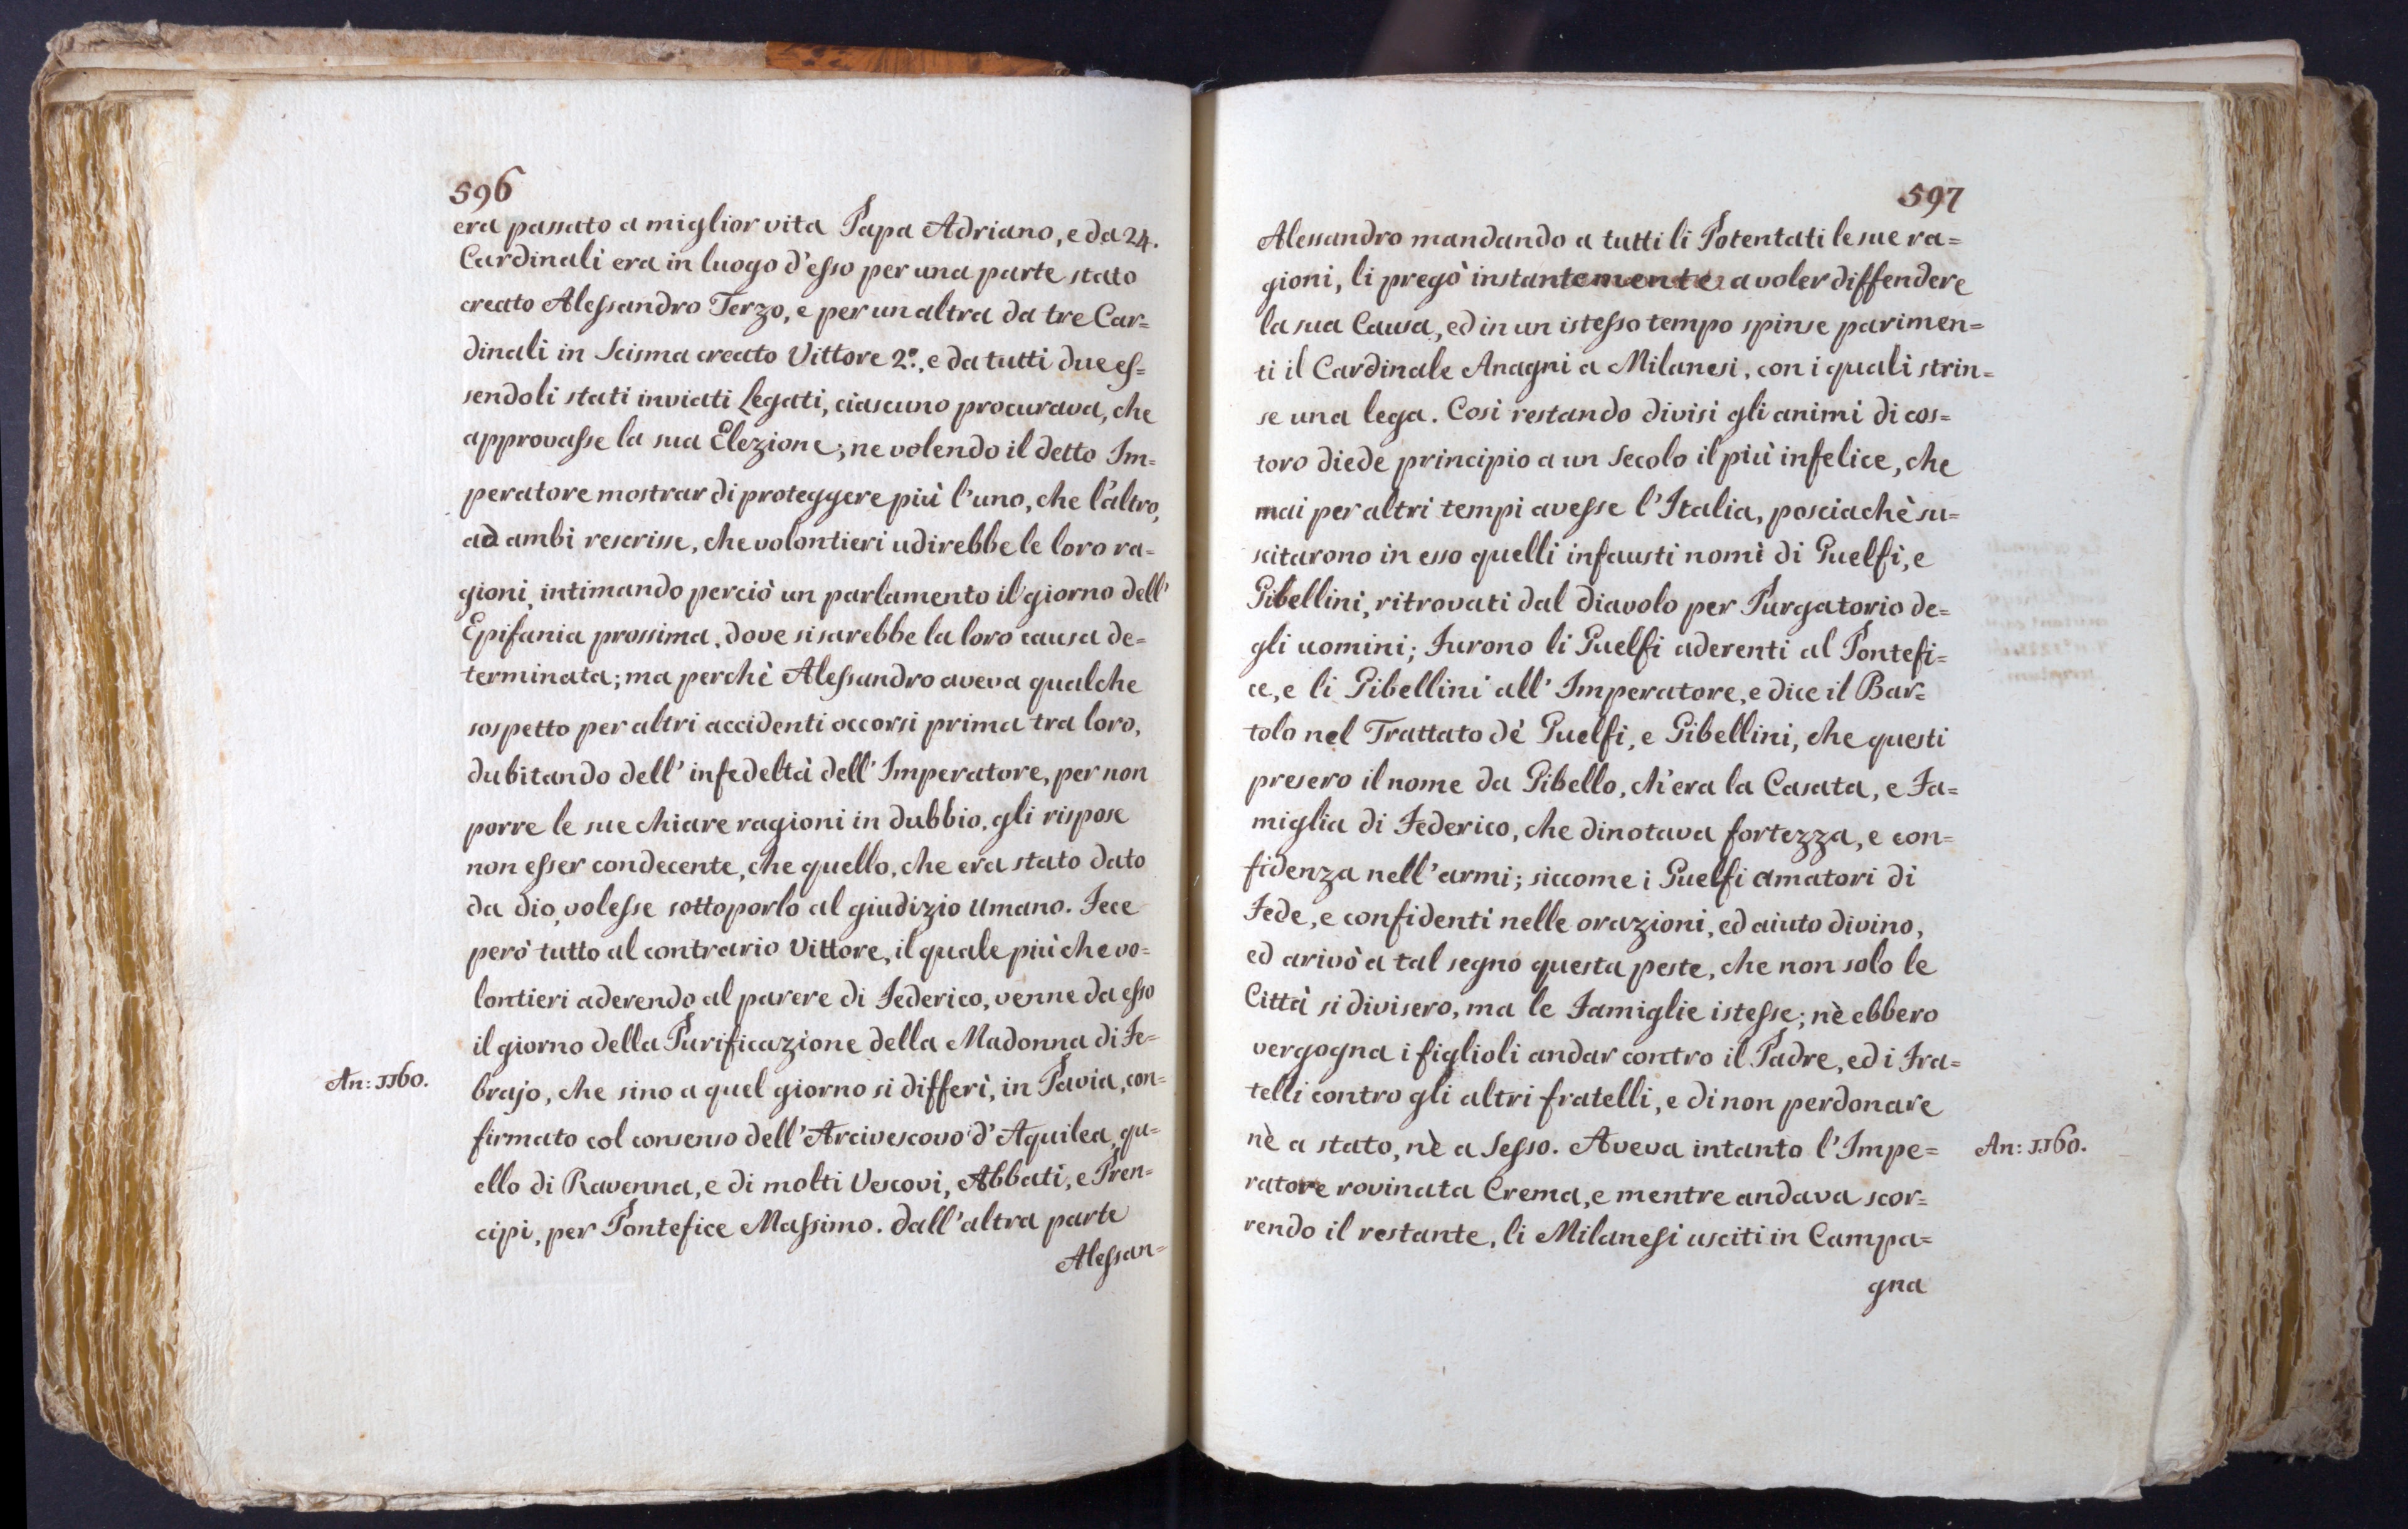 596
era passato a miglior vita Papa Adriano, e da 24.
Cardinali era in luogo d'esso per una parte stato
creato Alessandro Terzo, e per un altra da tre Car=
dinali in Scisma creato Vittore 2º., e da tutti due es=
sendoli stati inviati Legati, ciascuno procurava, che
approvasse la sua Elezione; ne volendo il detto Im=
peratore mostrar di proteggere più l'uno, che l'altro,
ad ambi rescrisse, che volontieri udirebbe le loro ra=
gioni, intimando perciò un parlamento il giorno dell'
Epifania prossima, dove si sarebbe la loro causa de=
terminata; ma perchè Alessandro aveva qualche
sospetto per altri accidenti occorsi prima tra loro,
dubitando dell' infedeltà dell' Imperatore, per non
porre le sue chiare ragioni in dubbio, gli rispose
non esser condecente, che quello, che era stato dato
da dio, volesse sottoporlo al giudizio umano. Fece
però tutto al contrario Vittore, il quale più che vo=
lontieri aderendo al parere di Federico, venne da esso
il giorno della Purificazione della Madonna di Fe=
An: 1160.
brajo, che sino a quel giorno si differì, in Pavia, con=
firmato col consenso dell' Arcivescovo d' Aquilea, qu=
ello di Ravenna, e di molti Vescovi, Abbati, e Pren=
cipi, per Pontefice Massimo. dall' altra parte
Alessan=
597
Alessandro mandando a tutti li Potentati le sue ra=
gioni, li pregò instantemente a voler diffendere
la sua Causa, ed in un istesso tempo spinse parimen=
ti il Cardinale Anagni a Milanesi, con i quali strin=
se una lega. Così restando divisi gli animi di cos=
toro diede principio a un Secolo il più infelice, che
mai per altri tempi avesse l' Italia, posciachè su=
scitarono in esso quelli infausti nomi di Guelfi, e
Gibellini, ritrovati dal diavolo per Purgatorio de=
gli uomini; Furono li Guelfi aderenti al Pontefi=
ce, e li Gibellini all' Imperatore, e dice il Bar=
tolo nel Trattato dè Guelfi, e Gibellini, che questi
presero il nome da Gibello, ch'era la Casata, e Fa=
miglia di Federico, che dinotava fortezza, e con=
fidenza nell' armi; siccome i Guelfi amatori di
Fede, e confidenti nelle orazioni, ed aiuto divino,
ed arivò a tal segno questa peste, che non solo le
Città si divisero, ma le Famiglie istesse; nè ebbero
vergogna i figlioli andar contro il Padre, ed i Fra=
telli contro gli altri fratelli, e di non perdonare
nè a stato, nè a Sesso. Aveva intanto l' Impe=
An: 1160.
ratore rovinata Crema, e mentre andava scor=
rendo il restante, li Milanesi usciti in Campa=
gna